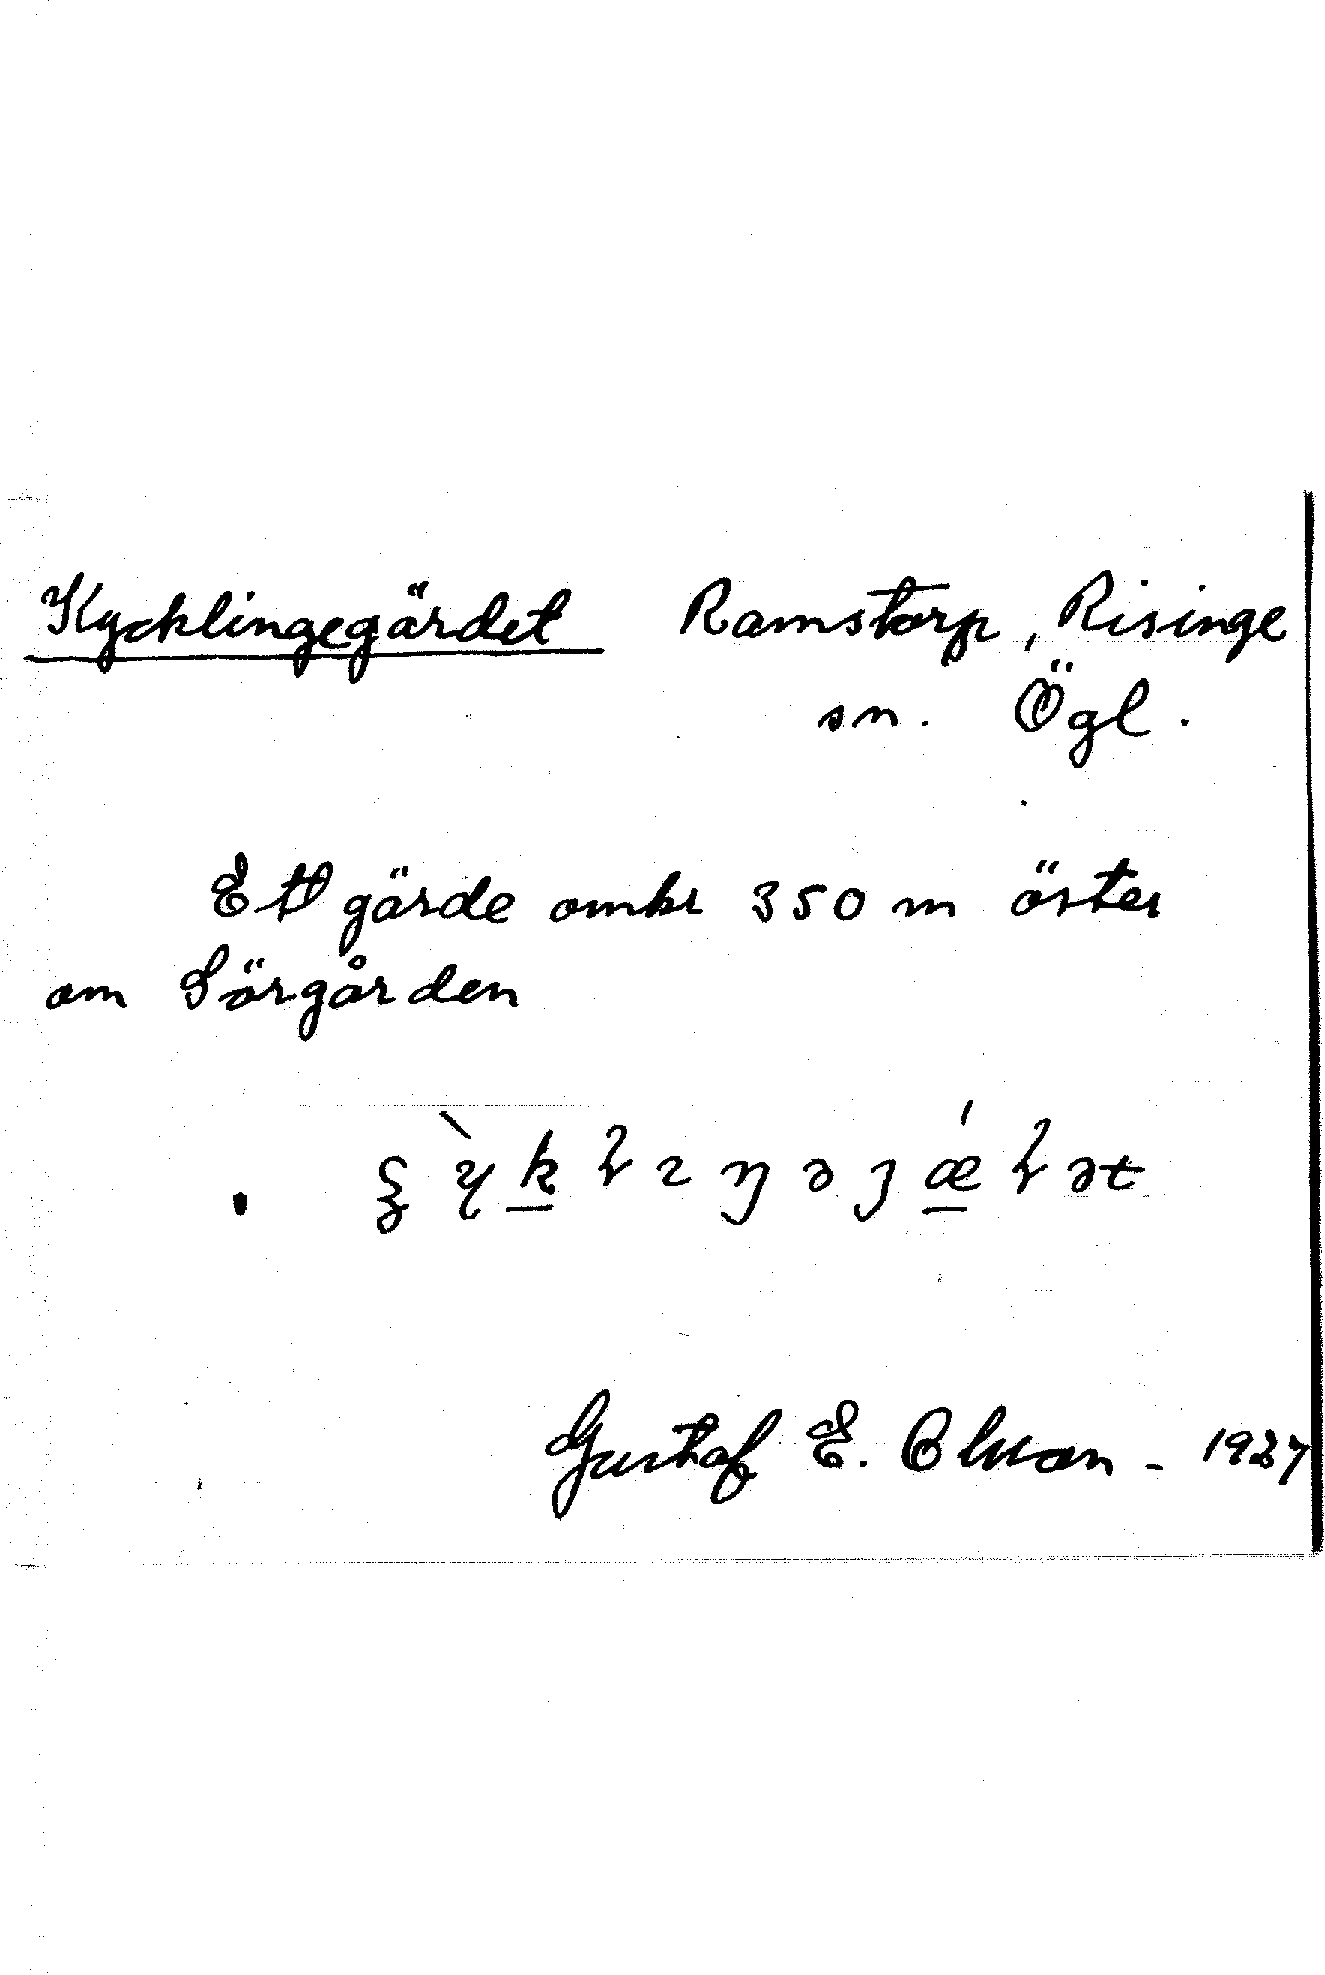 Kycklingegärdet Ramstorp, Risinge
sn. Ögl.
Ett gärde omkr 350 m öster
om Sörgården
Gustaf E. Olsson - 1927